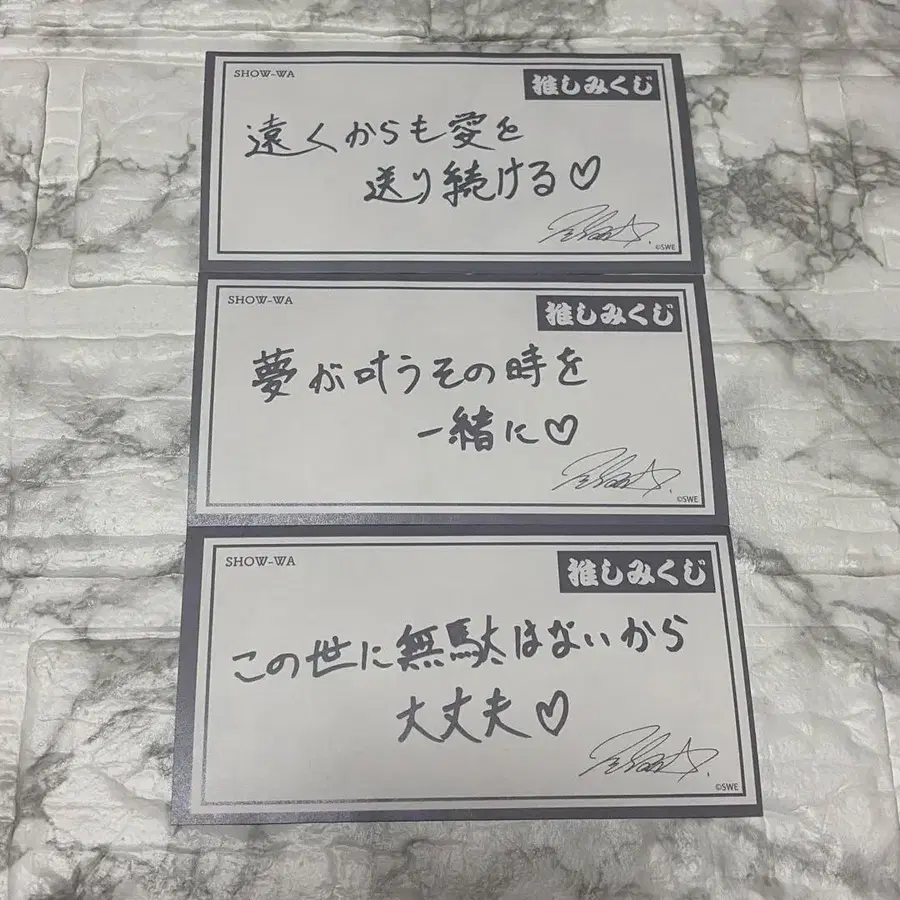 SHOW-WA
推しみくじ
遠くからも愛を
送り続ける♡
©SWE
SHOW-WA
推しみくじ
夢が叶うその時を
一緒に♡
©SWE
SHOW-WA
推しみくじ
この世に無駄はないから
大丈夫♡
©SWE